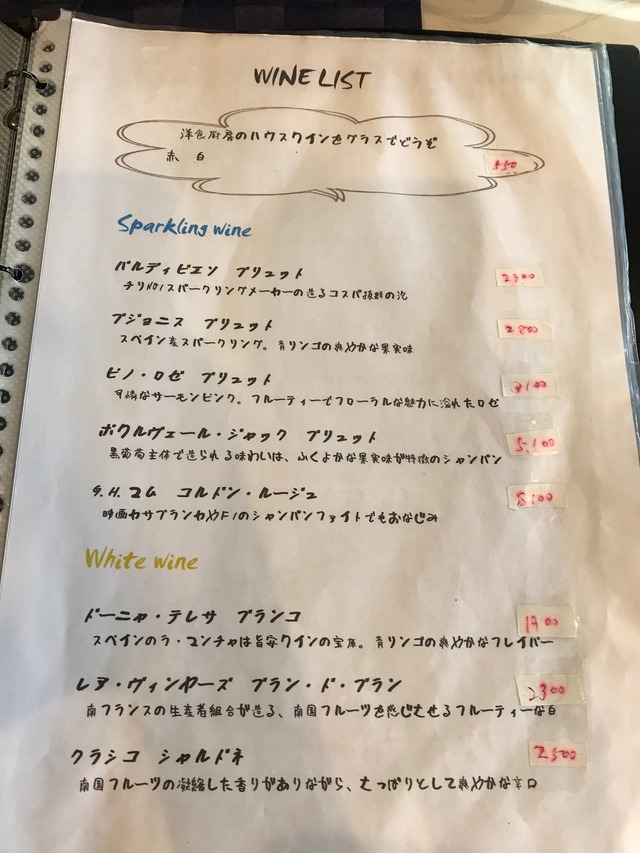 WINE LIST
洋食厨房のハウスワインをグラスでどうぞ
赤 白
550
Sparkling wine
バルディビエソ ブリュット
2300
チリNO1スパークリングメーカーの造るコスパ抜群の泡
ブジョニス ブリュット
2800
スペイン産スパークリング。青リンゴの爽やかな果実味
ピノ・ロゼ ブリュット
3100
可憐なサーモンピンク。フルーティーでフローラルな魅力に溢れたロゼ
ボクルヴェール・ジャック ブリュット
5,100
黒葡萄主体で造られる味わいは、ふくよかな果実味が特徴のシャンパン
G.H.マム コルドン・ルージュ
8100
映画カサブランカやF1のシャンパンファイトでもおなじみ
White wine
ドーニャ・テレサ ブランコ
1900
スペインのラ・マンチャは旨安ワインの宝庫。青リンゴの爽やかなフレイバー
レア・ヴィンヤーズ ブラン・ド・ブラン
2300
南フランスの生産者組合が造る、南国フルーツを感じさせるフルーティーな白
クラシコ シャルドネ
2500
南国フルーツの凝縮した香りがありながら、さっぱりとして爽やかな辛口